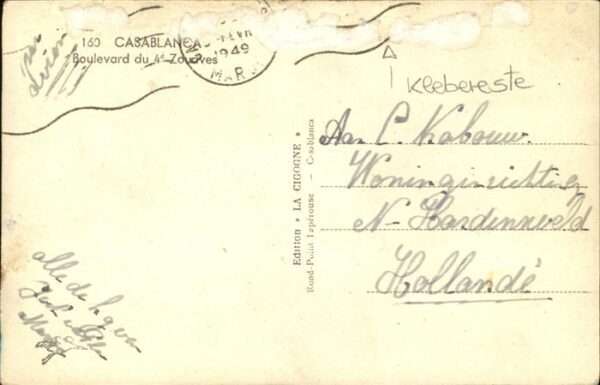 par
avion
160 CASABLANCA
Boulevard du 4e Zouaves
1949
MAR
Klebereste
Aan C. Kabouw.
Woninginrichting
N- Hardinxveld
Hollande
Edition "LA CIGOGNE"
Rond-Point Lapérouse - Casablanca
alle de